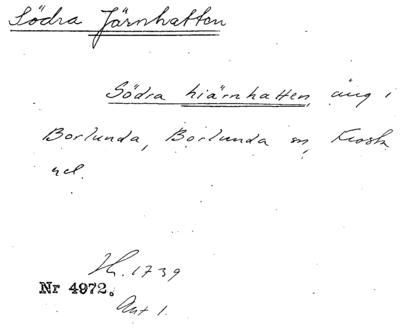 Södra Järnhatten
Södra hiärnhatten, äng i
Borlunda, Borlunda sn, Frosta
hd.
Lh. 1739
Nr 4972.
Akt 1.